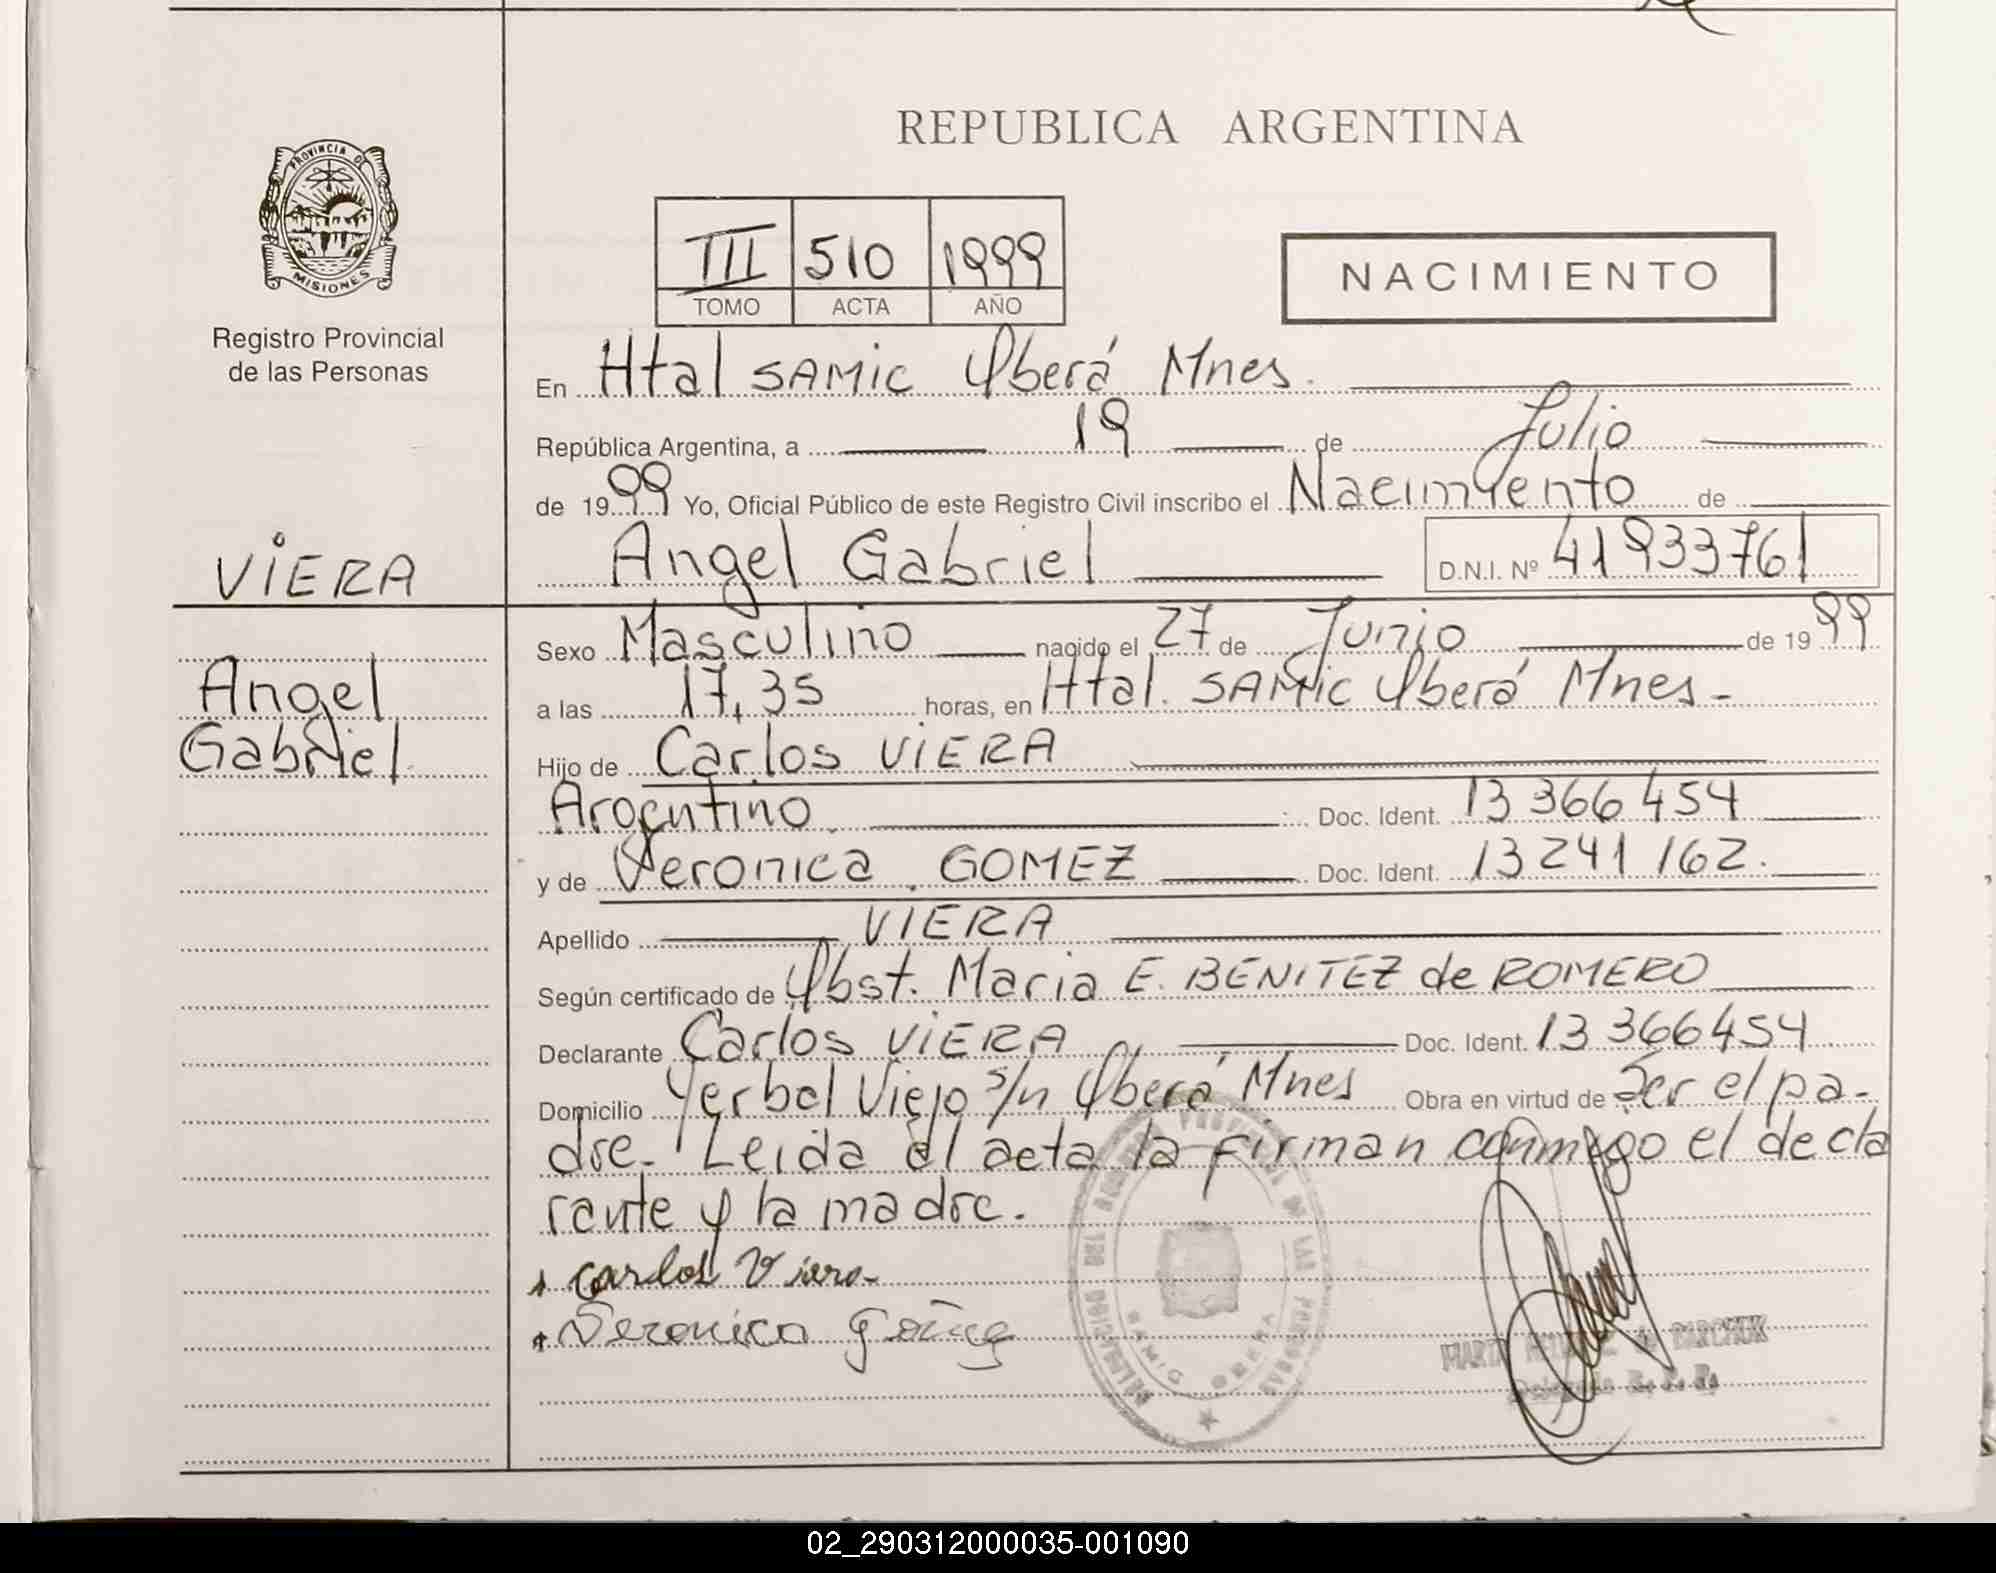 REPUBLICA ARGENTINA
PROVINCIA DE
MISIONES
Registro Provincial
de las Personas
III 510 1999
TOMO ACTA AÑO
NACIMIENTO
En Htal SAMIC Oberá Mnes.
República Argentina, a 19 de Julio
de 1999 Yo, Oficial Público de este Registro Civil inscribo el Nacimiento de
VIERA
Angel Gabriel D.N.I. Nº 41933761
Angel
Gabriel
Sexo Masculino nacido el 27 de Junio de 1999
a las 17,35 horas, en Htal. SAMIC Oberá Mnes-
Hijo de Carlos VIERA
Argentino Doc. Ident. 13 366 454
y de Veronica GOMEZ Doc. Ident. 13 241 162.
Apellido VIERA
Según certificado de Obst. Maria E. BENITEZ de ROMERO
Declarante Carlos VIERA Doc. Ident. 13 366454
Domicilio Yerbal Viejo s/n Oberá Mnes Obra en virtud de Ser el pa-
dre. Leida el acta la firman conmigo el decla
rante y la madre.
Carlos Viera
Veronica
DELEGACION REGISTRO PROVINCIAL DE LAS PERSONAS
SAMIC OBERA
02_290312000035-001090